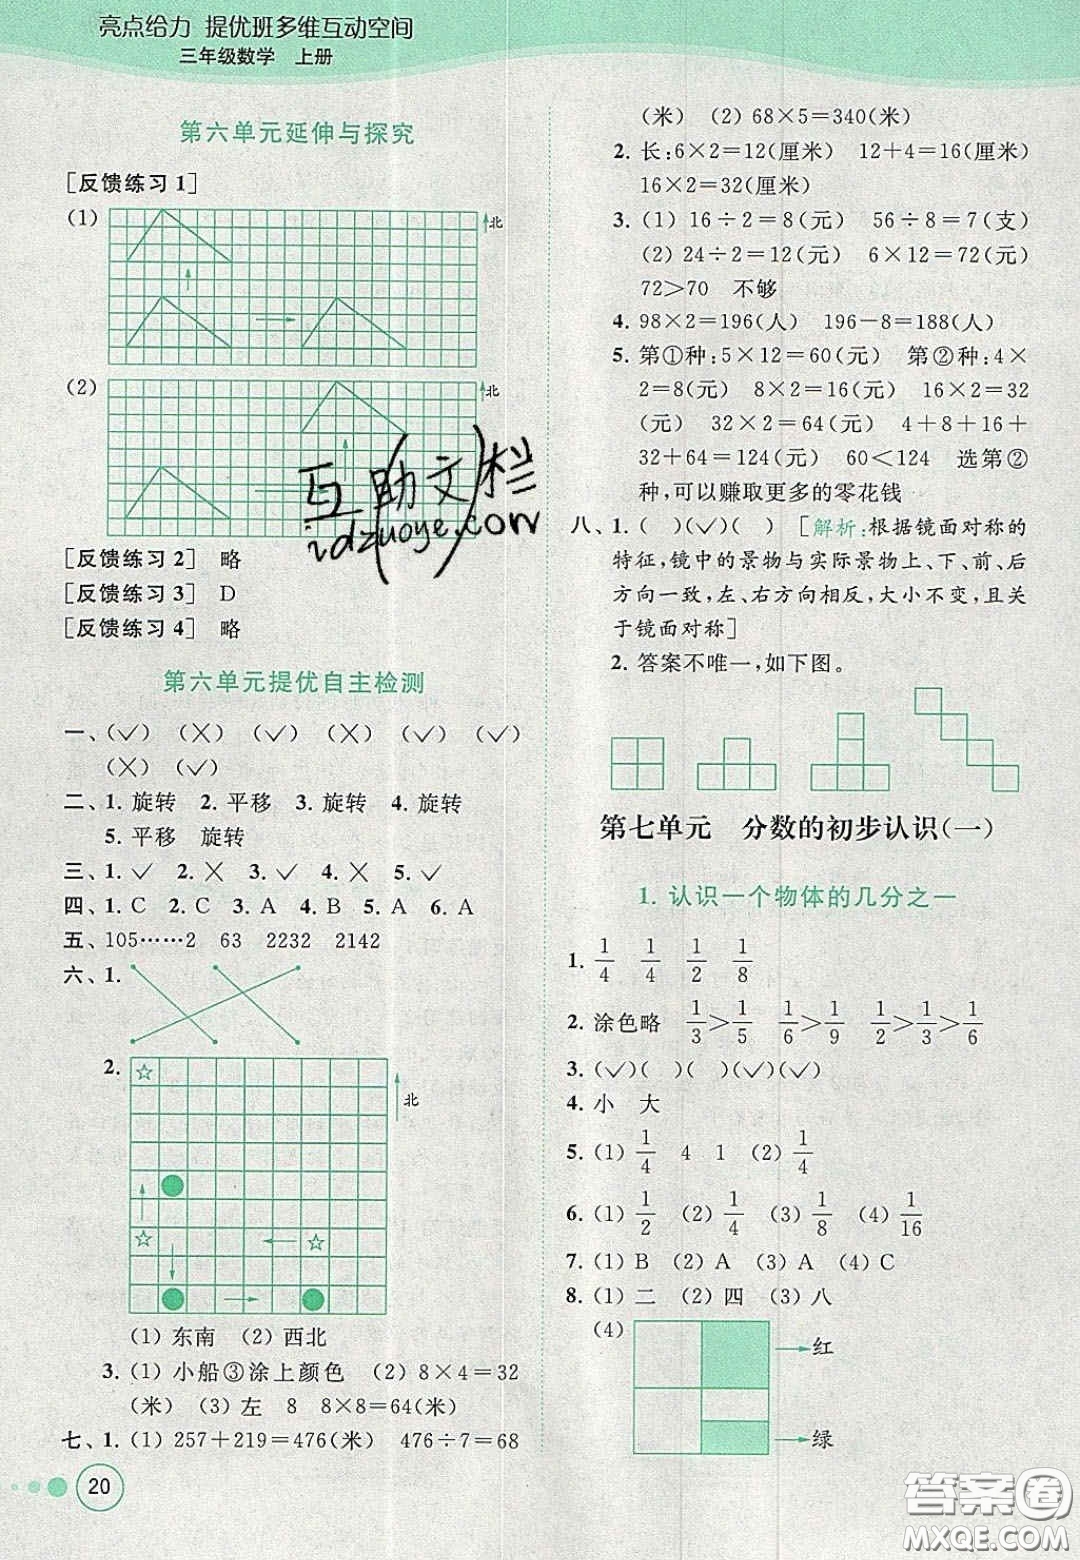 亮点给力 提优班多维互动空间
三年级数学 上册
第六单元延伸与探究
[反馈练习 1]
(1)
北
(2)
北
[反馈练习 2] 略
[反馈练习 3] D
[反馈练习 4] 略
第六单元提优自主检测
一、(✓) (╳) (✓) (╳) (✓) (✓)
(╳) (✓)
二、1. 旋转 2. 平移 3. 旋转 4. 旋转
5. 平移 旋转
三、1. ✓ 2. ╳ 3. ✓ 4. ╳ 5. ✓
四、1. C 2. C 3. A 4. B 5. A 6. A
五、105……2 63 2232 2142
六、1.
2.
北
(1) 东南 (2) 西北
3. (1) 小船③涂上颜色 (2) 8×4=32
(米) (3) 左 8 8×8=64(米)
七、1. (1) 257+219=476(米) 476÷7=68
20
(米) (2) 68×5=340(米)
2. 长:6×2=12(厘米) 12+4=16(厘米)
16×2=32(厘米)
3. (1) 16÷2=8(元) 56÷8=7(支)
(2) 24÷2=12(元) 6×12=72(元)
72>70 不够
4. 98×2=196(人) 196-8=188(人)
5. 第①种:5×12=60(元) 第②种:4×
2=8(元) 8×2=16(元) 16×2=32
(元) 32×2=64(元) 4+8+16+
32+64=124(元) 60<124 选第②
种,可以赚取更多的零花钱
八、1. ( )(✓)( ) [解析:根据镜面对称的
特征,镜中的景物与实际景物上、下、前、后
方向一致,左、右方向相反,大小不变,且关
于镜面对称]
2. 答案不唯一,如下图。
第七单元 分数的初步认识(一)
1. 认识一个物体的几分之一
1. 1/4 1/4 1/2 1/8
2. 涂色略 1/3>1/5 1/6>1/9 1/2>1/3>1/6
3. (✓)( )( )(✓)(✓)
4. 小 大
5. (1) 1/4 4 1 (2) 1/4
6. (1) 1/2 (2) 1/4 (3) 1/8 (4) 1/16
7. (1) B (2) A (3) A (4) C
8. (1) 二 (2) 四 (3) 八
(4)
红
绿
互助文栏
idzuoye.com
答案圈
MXQE.COM